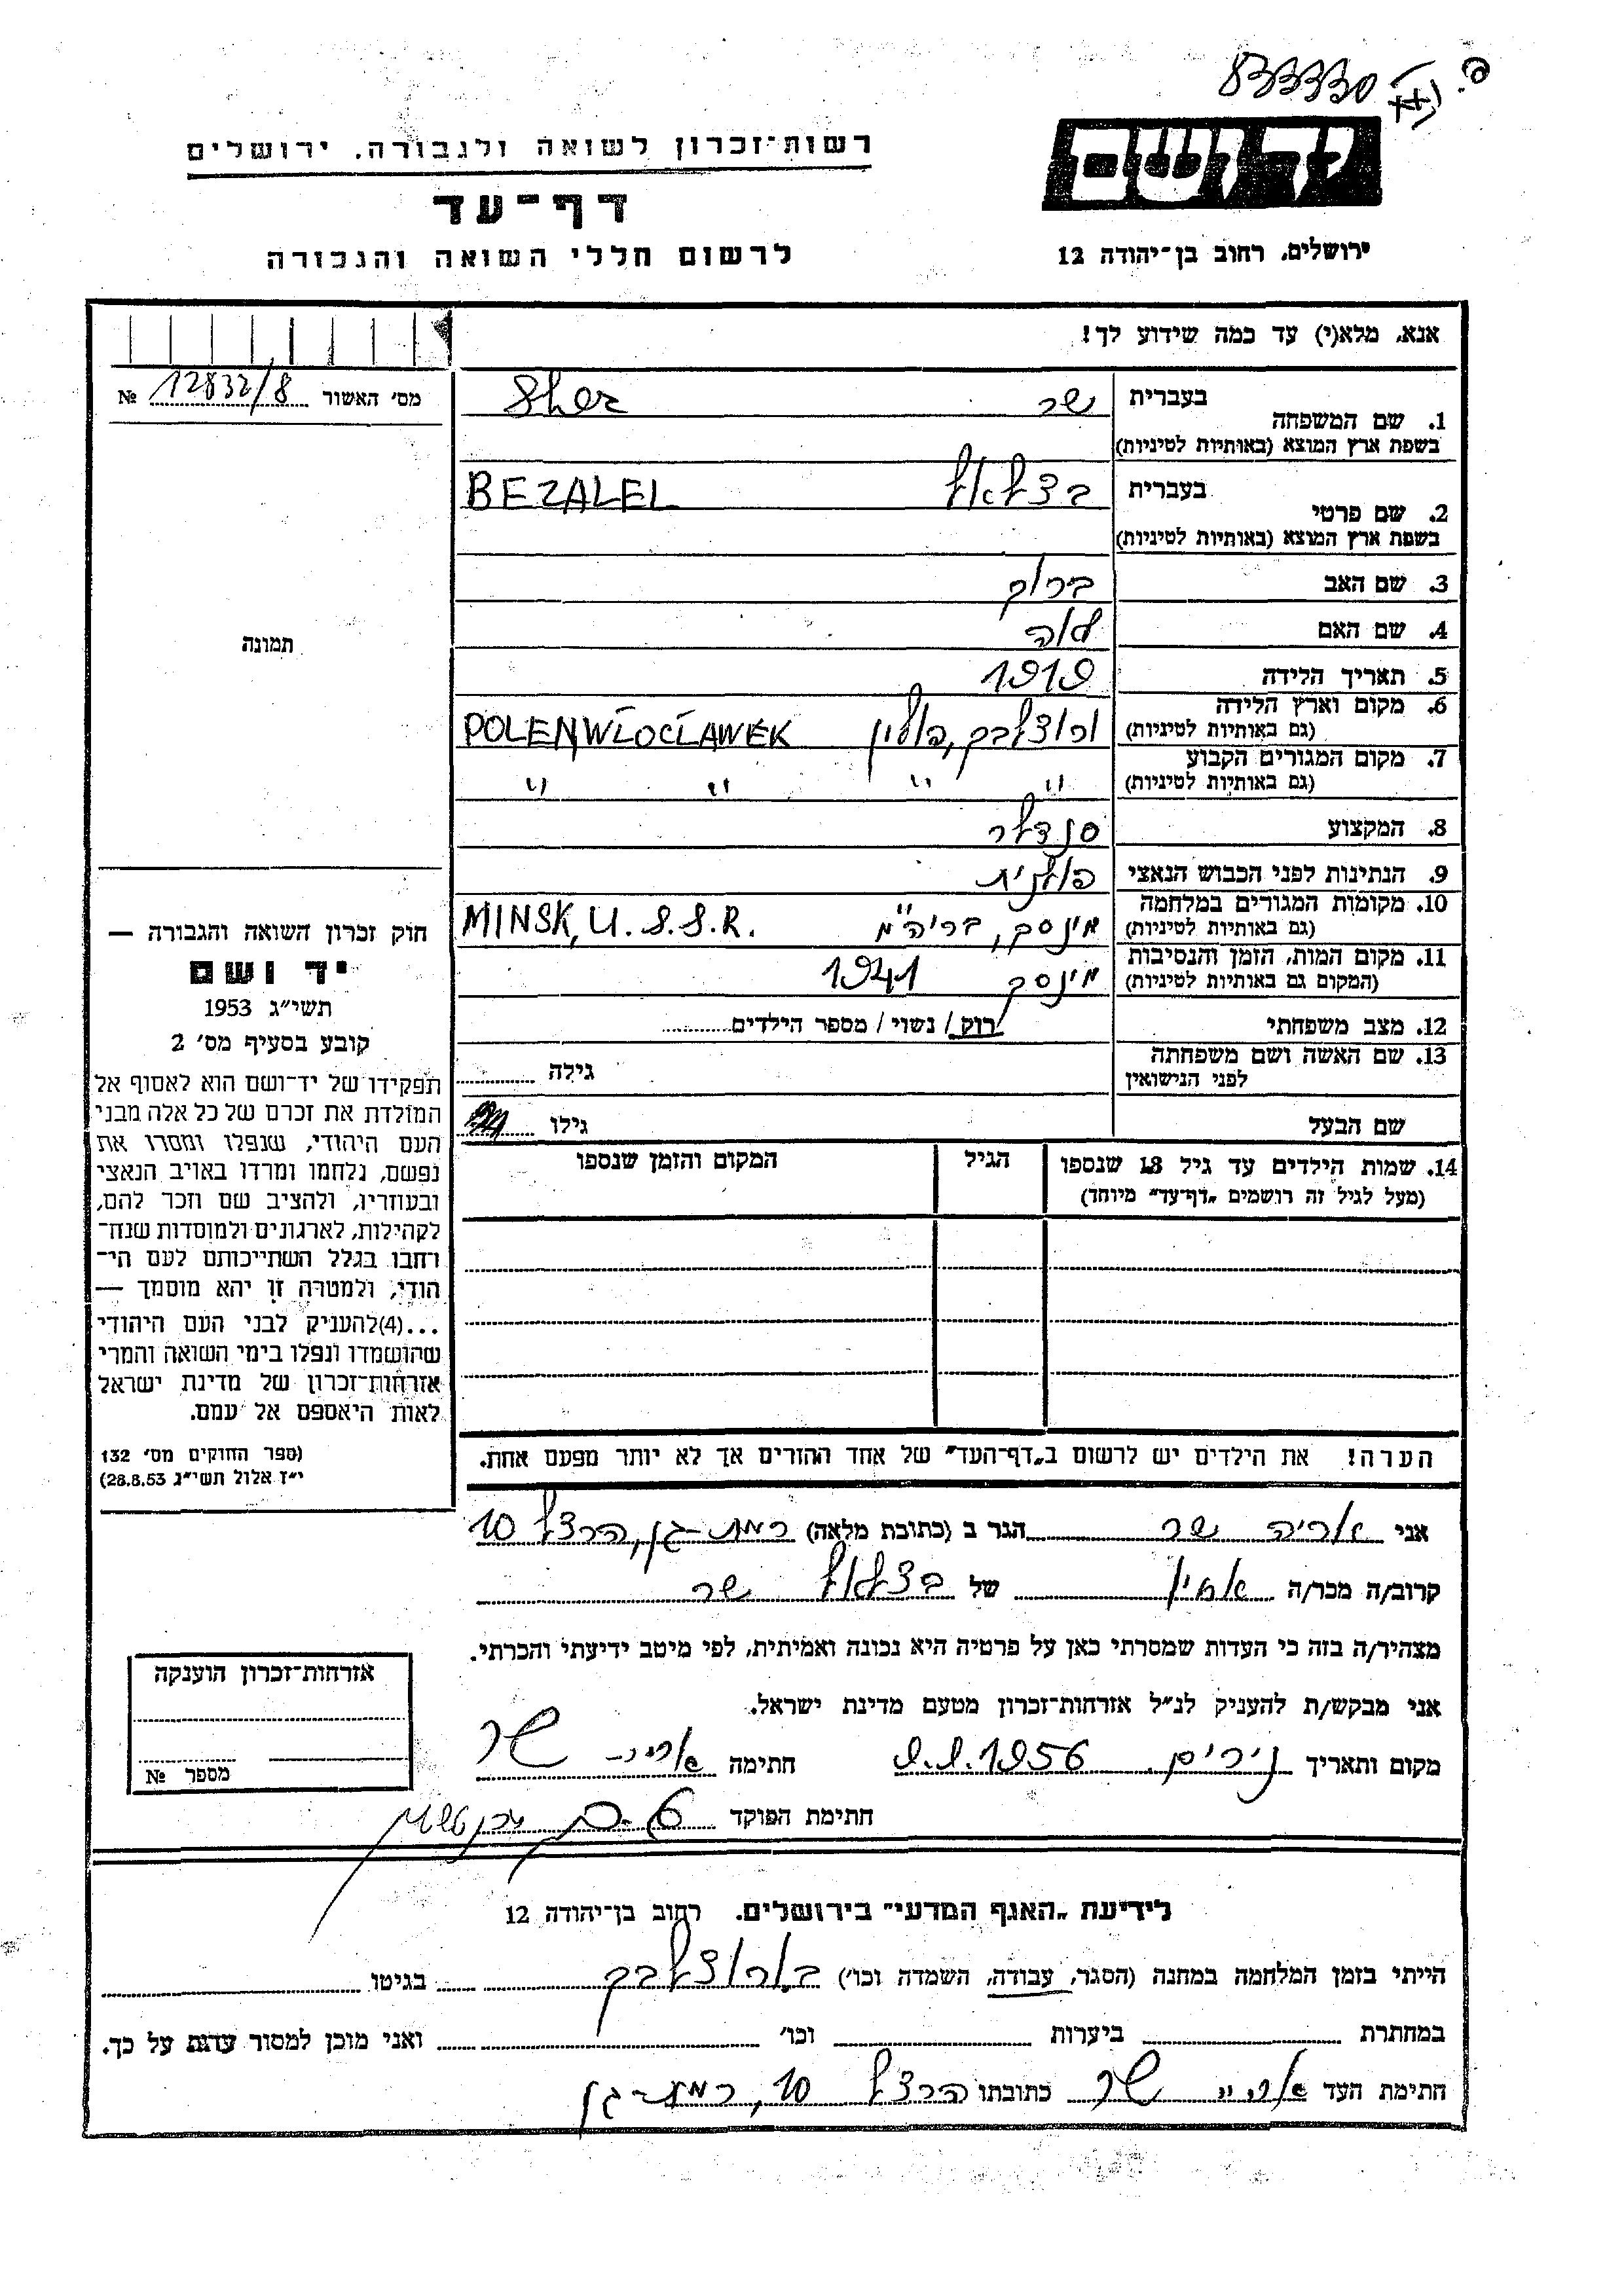 833330
יד ושם
ירושלים, רחוב בן־יהודה 12
רשות־זכרון לשואה ולגבורה, ירושלים
דף־עד
לרשום חללי השואה והגבורה
אנא, מלא(י) עד כמה שידוע לך!
מס׳ האשור 12832/8 №
תמונה
חוק זכרון השואה והגבורה —
יד ושם
תשי״ג 1953
קובע בסעיף מס׳ 2
תפקידו של יד־ושם הוא לאסוף אל
המולדת את זכרם של כל אלה מבני
העם היהודי, שנפלו ומסרו את
נפשם, נלחמו ומרדו באויב הנאצי
ובעוזריו, ולהציב שם וזכר להם,
לקהילות, לארגונים ולמוסדות שנח־
רחבו בגלל השתייכותם לעם הי־
הודי, ולמטרה זו יהא מוסמך —
...(4)להעניק לבני העם היהודי
שהושמדו ונפלו בימי השואה והמרי
אזרחות־זכרון של מדינת ישראל
לאות היאספם אל עמם.
(ספר החוקים מס׳ 132
י״ז אלול תשי״ג 28.8.53)
בעברית שר Sher
1. שם המשפחה
בשפת ארץ המוצא (באותיות לטיניות)
בעברית בצלאל BEZALEL
2. שם פרטי
בשפת ארץ המוצא (באותיות לטיניות)
3. שם האב ברוך
4. שם האם לאה
5. תאריך הלידה 1919
6. מקום וארץ הלידה
(גם באותיות לטיניות) ולוצלבק, פולין POLEN, WŁOCŁAWEK
7. מקום המגורים הקבוע
(גם באותיות לטיניות) " " " "
8. המקצוע סנדלר
9. הנתינות לפני הכבוש הנאצי פולנית
10. מקומות המגורים במלחמה
(גם באותיות לטיניות) מינסק, בריה"מ MINSK, U.S.S.R.
11. מקום המות, הזמן והנסיבות
(המקום גם באותיות לטיניות) מינסק 1941
12. מצב משפחתי רוק / נשוי / מספר הילדים
13. שם האשה ושם משפחתה
לפני הנישואין גילה
שם הבעל גילו
14. שמות הילדים עד גיל 18 שנספו הגיל המקום והזמן שנספו
(מעל לגיל זה רושמים „דף־עד” מיוחד)
הערה! את הילדים יש לרשום ב„דף־העד” של אחד ההורים אך לא יותר מפעם אחת.
אני אריה שר הגר ב (כתובת מלאה) רמת-גן, הרצל 10
קרוב/ה מכר/ה אחיין של בצלאל שר
מצהיר/ה בזה כי העדות שמסרתי כאן על פרטיה היא נכונה ואמיתית, לפי מיטב ידיעתי והכרתי.
אני מבקש/ת להעניק לנ״ל אזרחות־זכרון מטעם מדינת ישראל.
מקום ותאריך נירים 9.9.1956 חתימה אריה שר
חתימת הפוקד
אזרחות־זכרון הוענקה
מספר №
לידיעת „האגף המדעי” בירושלים. רחוב בן־יהודה 12
הייתי בזמן המלחמה במחנה (הסגר, עבודה, השמדה וכו׳) בולוצלבק בגיטו
במחתרת ביערות וכו׳ ואני מוכן למסור עדות על כך.
חתימת העד אריה שר כתובתו הרצל 10, רמת-גן